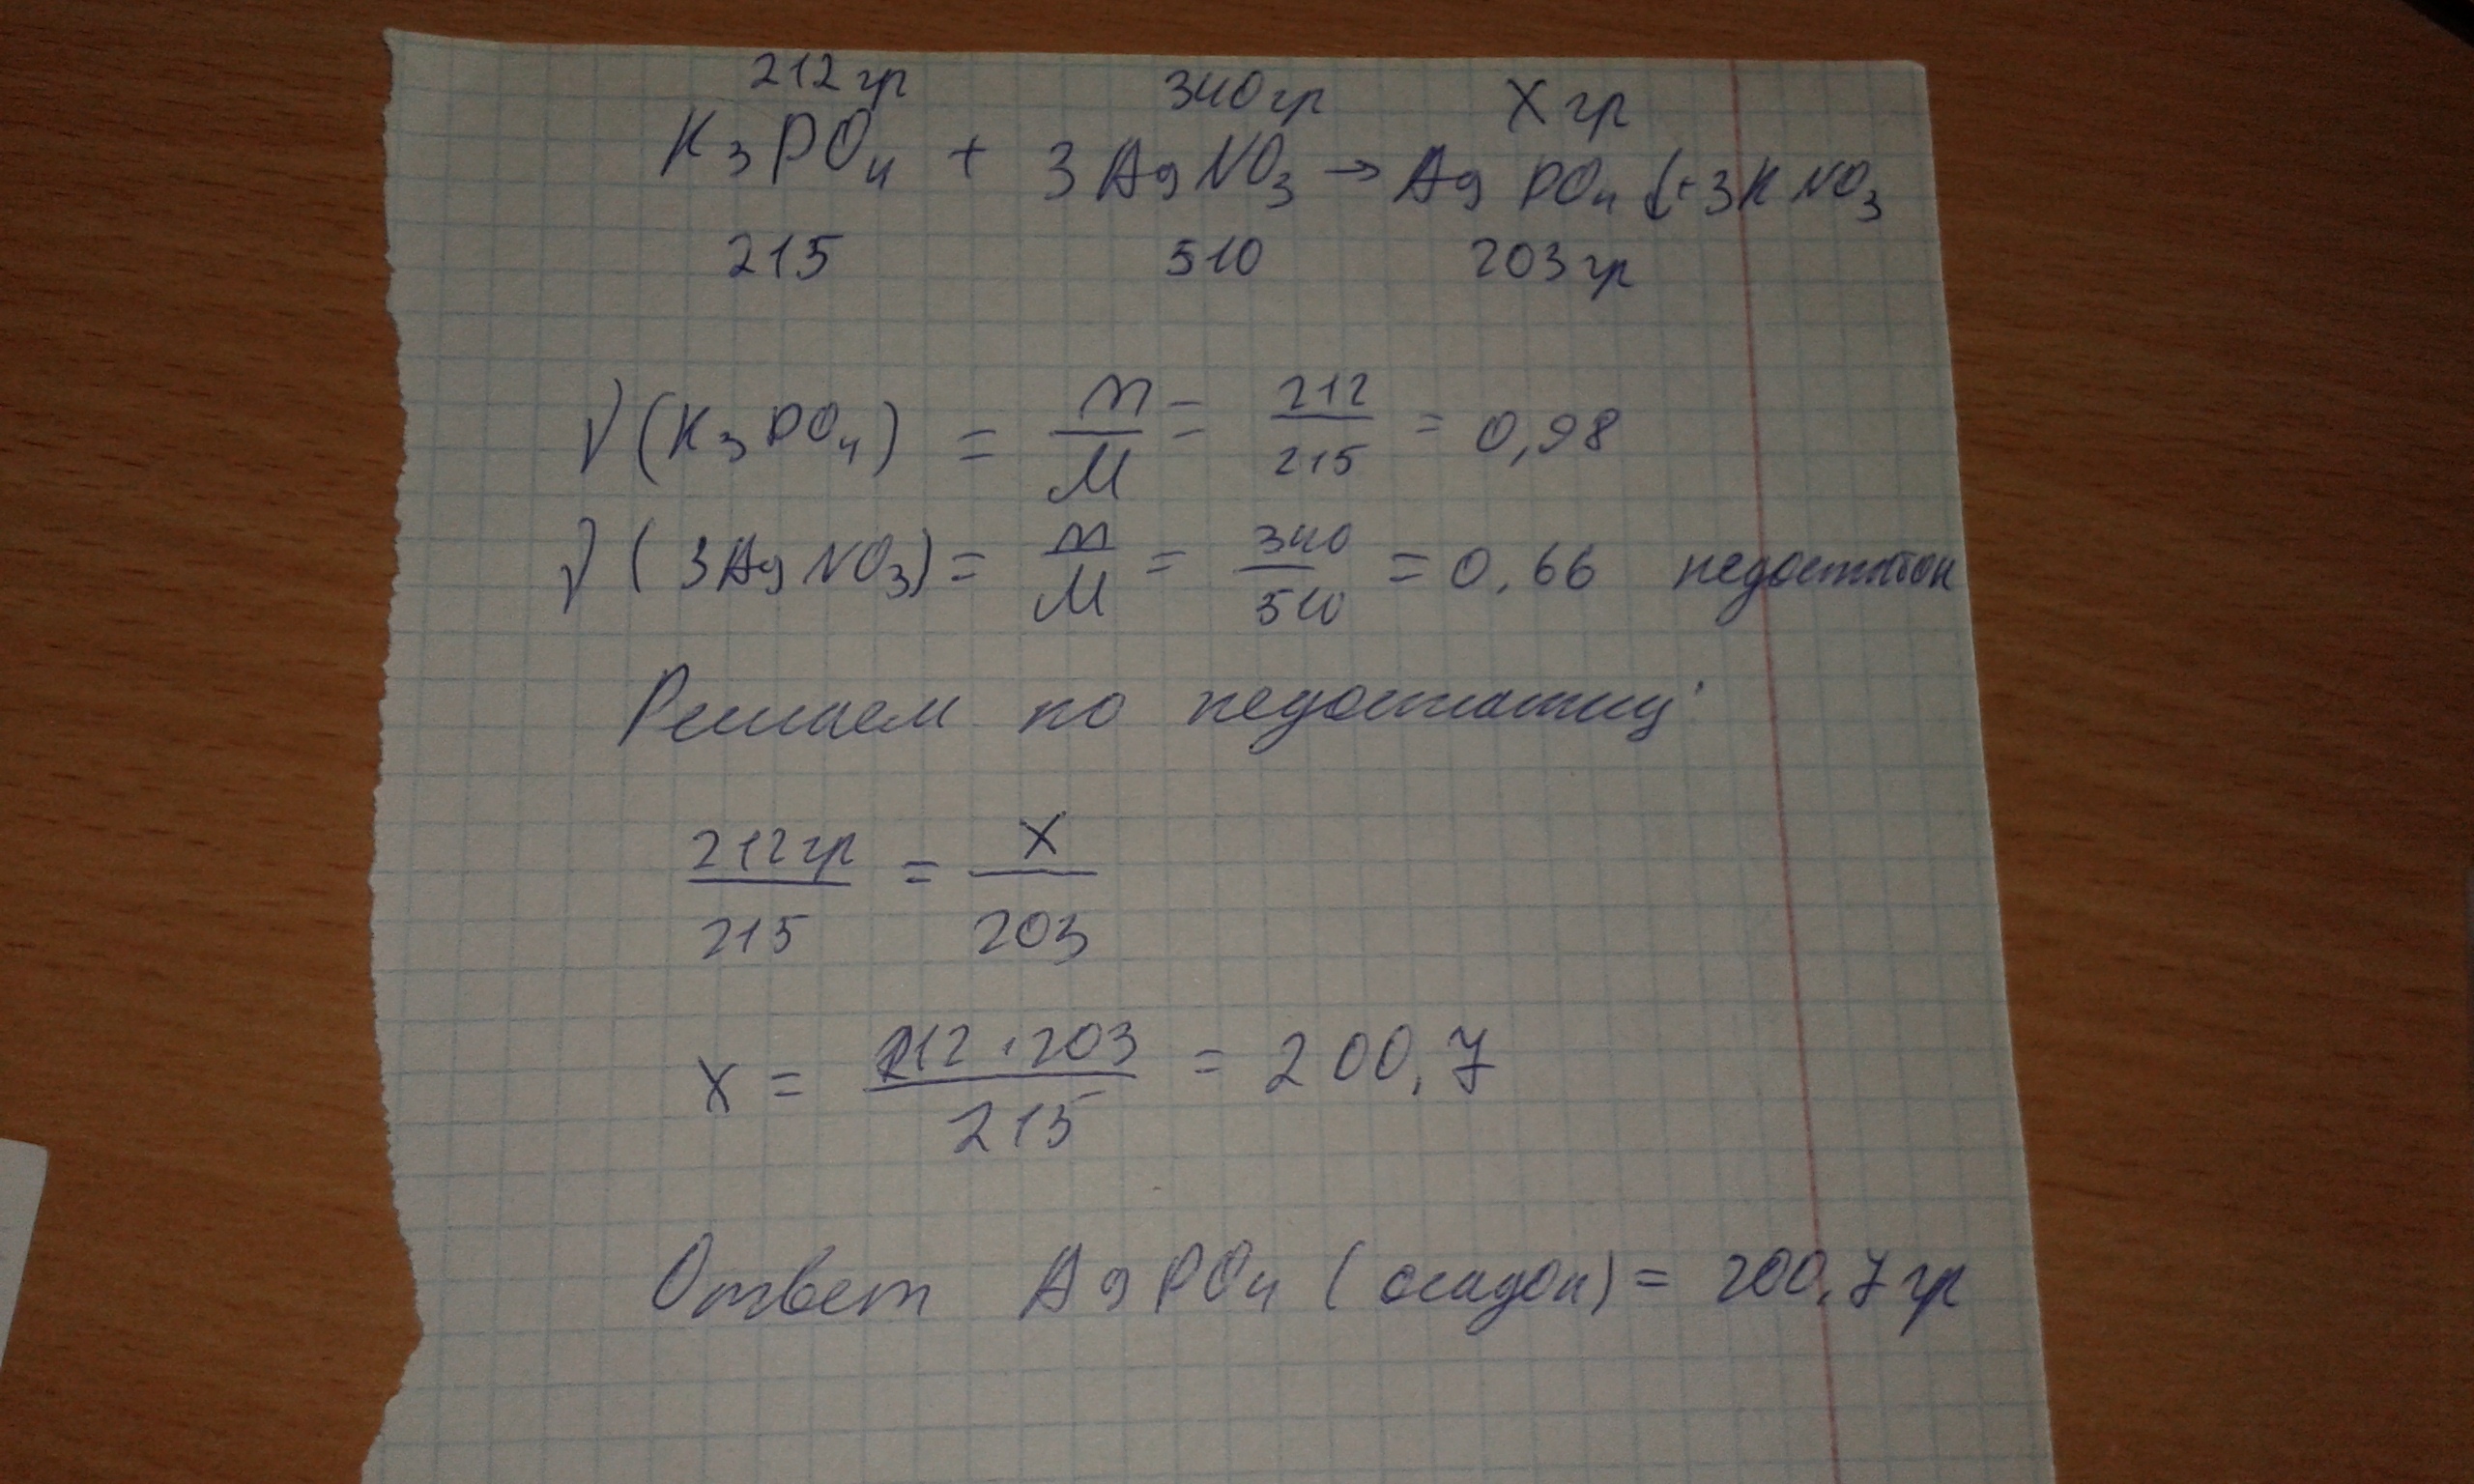 212 гр 340 гр X гр
K₃PO₄ + 3AgNO₃ → AgPO₄↓ + 3KNO₃
215 510 203 гр
ν(K₃PO₄) = m/M = 212/215 = 0,98
ν(3AgNO₃) = m/M = 340/510 = 0,66 недостаток
Решаем по недостатку:
212 гр/215 = X/203
X = 212·203/215 = 200,7
Ответ AgPO₄ (осадок) = 200,7 гр